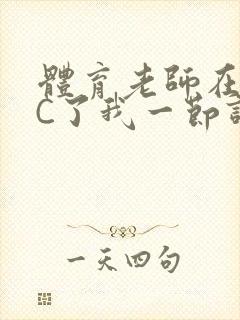 體育老師在
C了我一節
一天四句